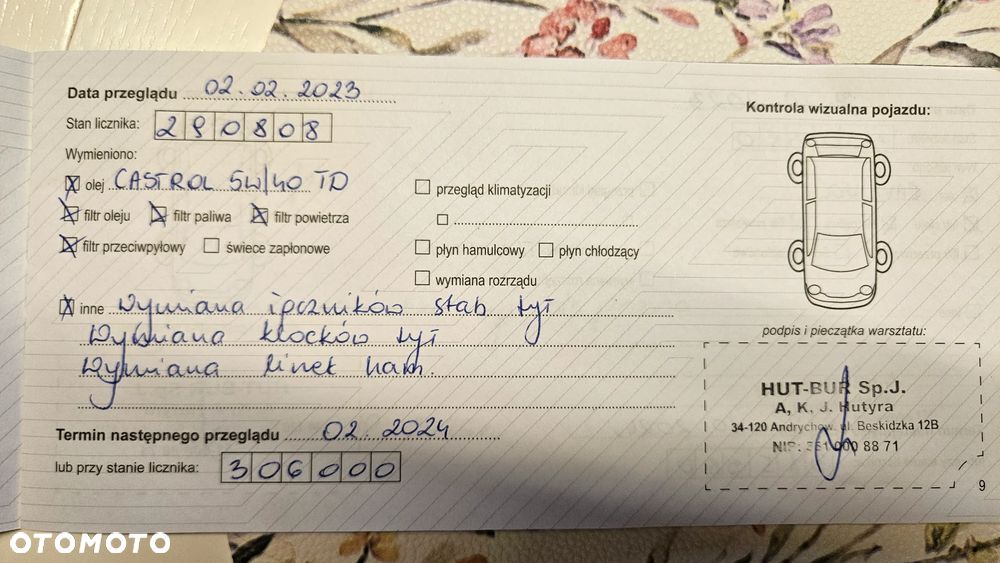 Data przeglądu 02.02.2023
Stan licznika: 290808
Wymieniono:
olej CASTROL 5W/40 TD
filtr oleju filtr paliwa filtr powietrza
filtr przeciwpyłowy świece zapłonowe
przegląd klimatyzacji
płyn hamulcowy płyn chłodzący
wymiana rozrządu
inne Wymiana łączników stab tył
Wymiana klocków tył
Wymiana linek ham.
Termin następnego przeglądu 02.2024
lub przy stanie licznika: 306000
Kontrola wizualna pojazdu:
podpis i pieczątka warsztatu:
HUT-BUR Sp.J.
A, K, J. Hutyra
34-120 Andrychów, ul. Beskidzka 12B
NIP: 551 000 88 71
9
OTOMOTO